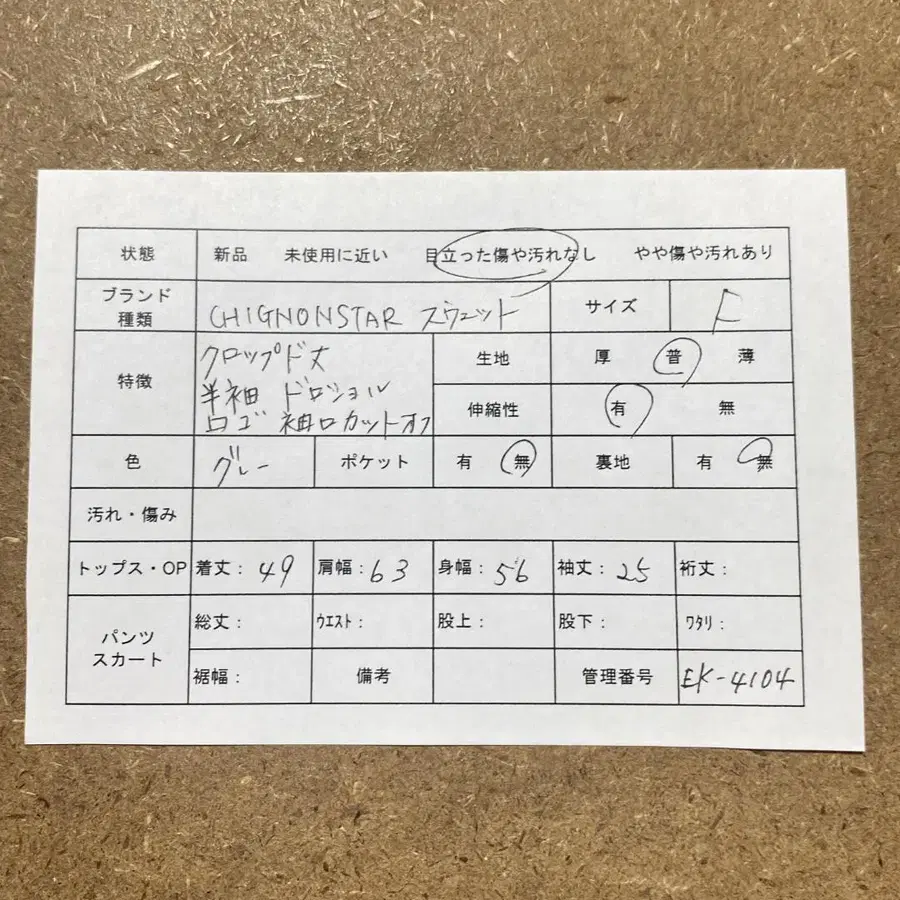 状態 新品 未使用に近い 目立った傷や汚れなし やや傷や汚れあり
ブランド
種類 CHIGNONSTAR スウェット サイズ F
特徴 クロップド丈
半袖 ドロショル
ロゴ 袖口カットオフ
生地 厚 普 薄
伸縮性 有 無
色 グレー ポケット 有 無 裏地 有 無
汚れ・傷み
トップス・OP 着丈: 49 肩幅: 63 身幅: 56 袖丈: 25 裄丈:
パンツ
スカート
総丈: ウエスト: 股上: 股下: ワタリ:
裾幅: 備考 管理番号 EK-4104